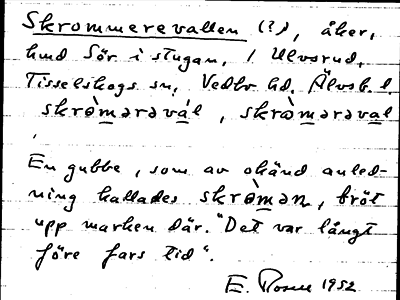 Skrommerevallen (?), åker,
hmd Sör i stugan, 1 Ulvsrud,
Tisselskogs sn, Vedbo hd. Älvsb. l.
skrò̱mərəvá̱l, skrò̱mərəva̱l
En gubbe, som av okänd anled-
ning kallades skrò̱mən, bröt
upp marken där. "Det var långt
före fars tid".
E. Rosen 1952